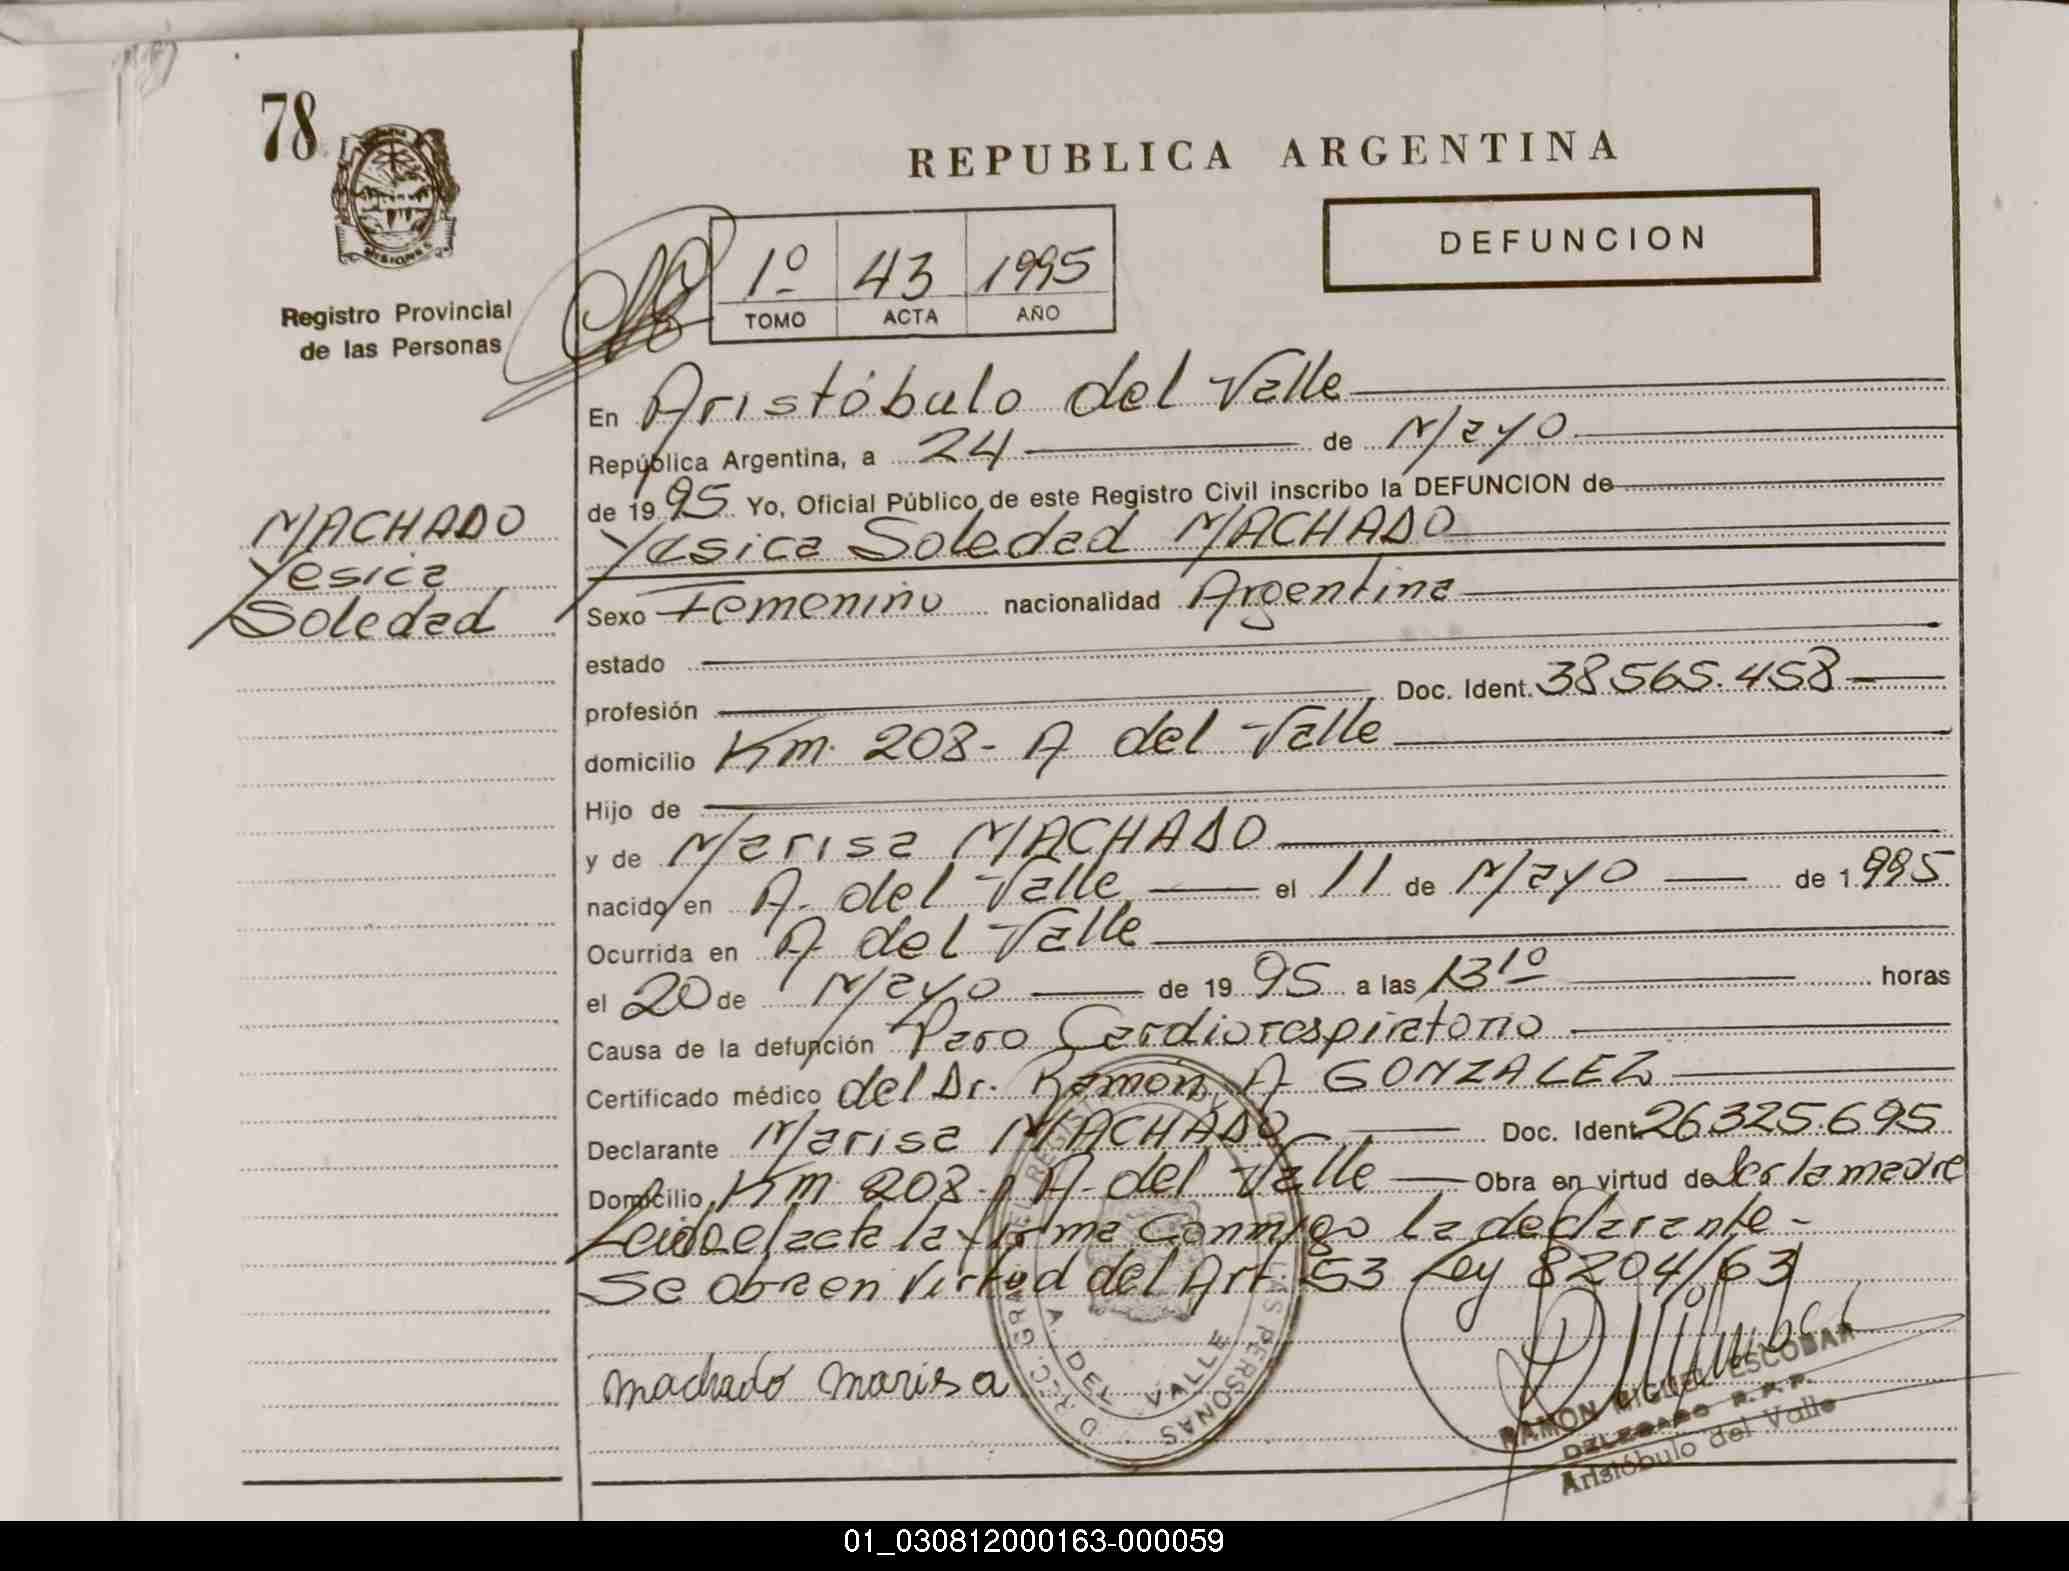 78
MISIONES
Registro Provincial
de las Personas
REPUBLICA ARGENTINA
DEFUNCION
1º 43 1995
TOMO ACTA AÑO
En Aristóbulo del Valle
República Argentina, a 24 de Mayo
de 1995 Yo, Oficial Público de este Registro Civil inscribo la DEFUNCION de
MACHADO
Yesica
Soledad
Yesica Soledad MACHADO
Sexo Femenino nacionalidad Argentina
estado
profesión Doc. Ident. 38.565.458
domicilio Km. 208 - A del Valle
Hijo de
y de Marisa MACHADO
nacido en A. del Valle el 11 de Mayo de 1.995
Ocurrida en A del Valle
el 20 de Mayo de 1995 a las 13 10 horas
Causa de la defunción Paro Cardiorespiratorio
Certificado médico del Dr. Ramón A GONZALEZ
Declarante Marisa MACHADO Doc. Ident. 26325.695
Domicilio Km. 208 - A. del Valle Obra en virtud de Ser la madre
Leida el acta la firma conmigo la declarante -
Se obra en Virtud del Art. 53 Ley 8204/63
machado marisa
A. DEL VALLE
DE LAS PERSONAS
RAMON MIGUEL ESCOBAR
DELEGADO R.P.P.
Aristóbulo del Valle
01_030812000163-000059